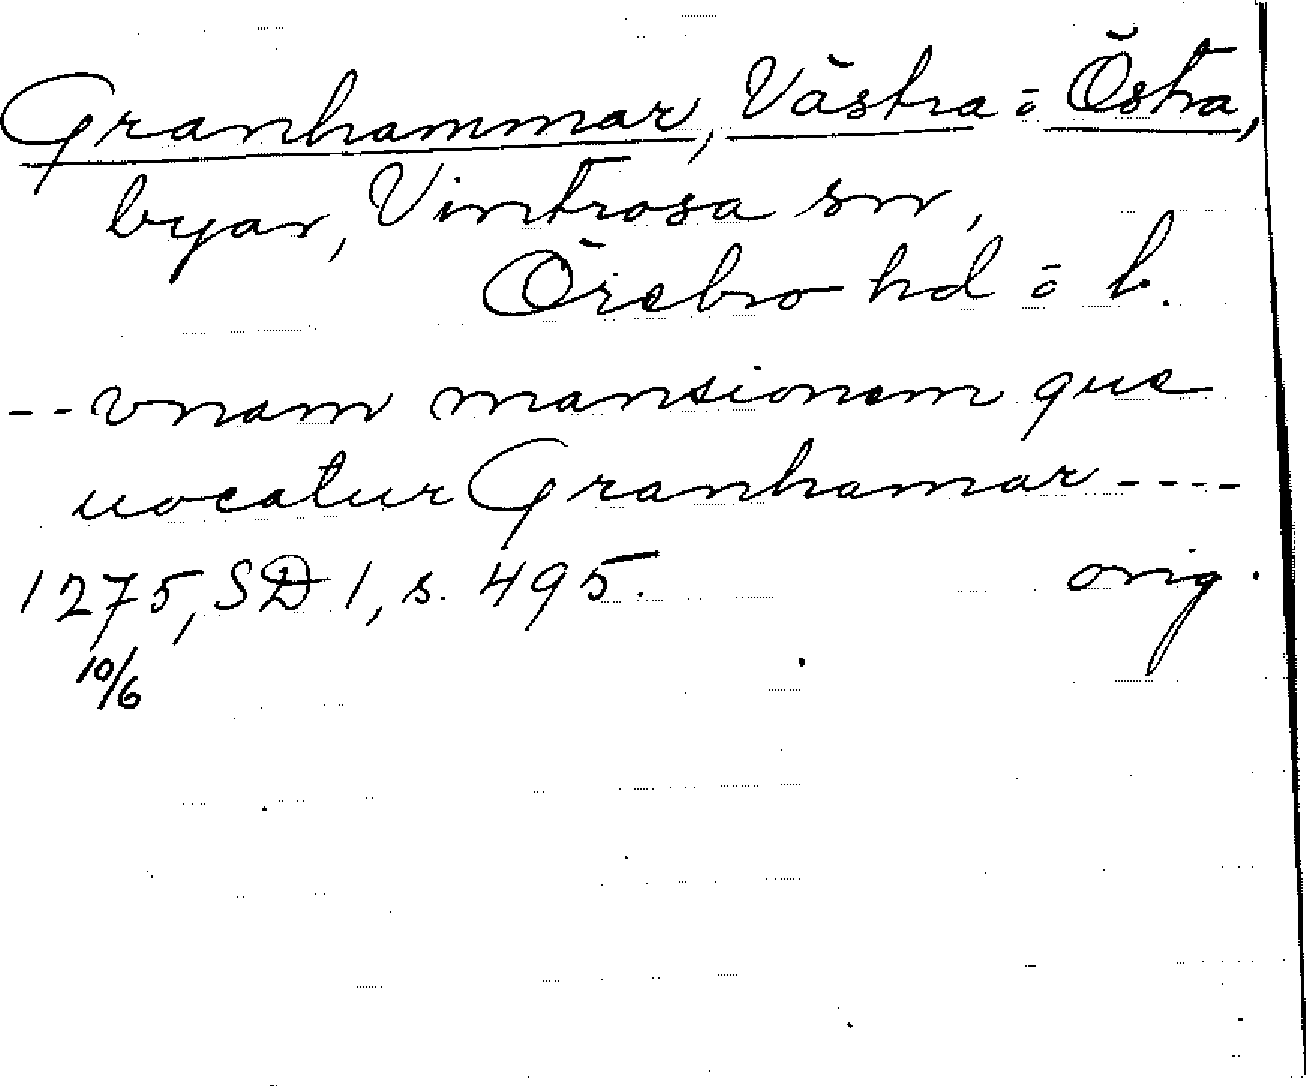 Granhammar, Västra o Östra,
byar, Vintrosa sn,
Örebro hd o l.
-- vnam mansionem que
uocatur Granhamar ----
1275, SD 1, s. 495. orig.
10/6